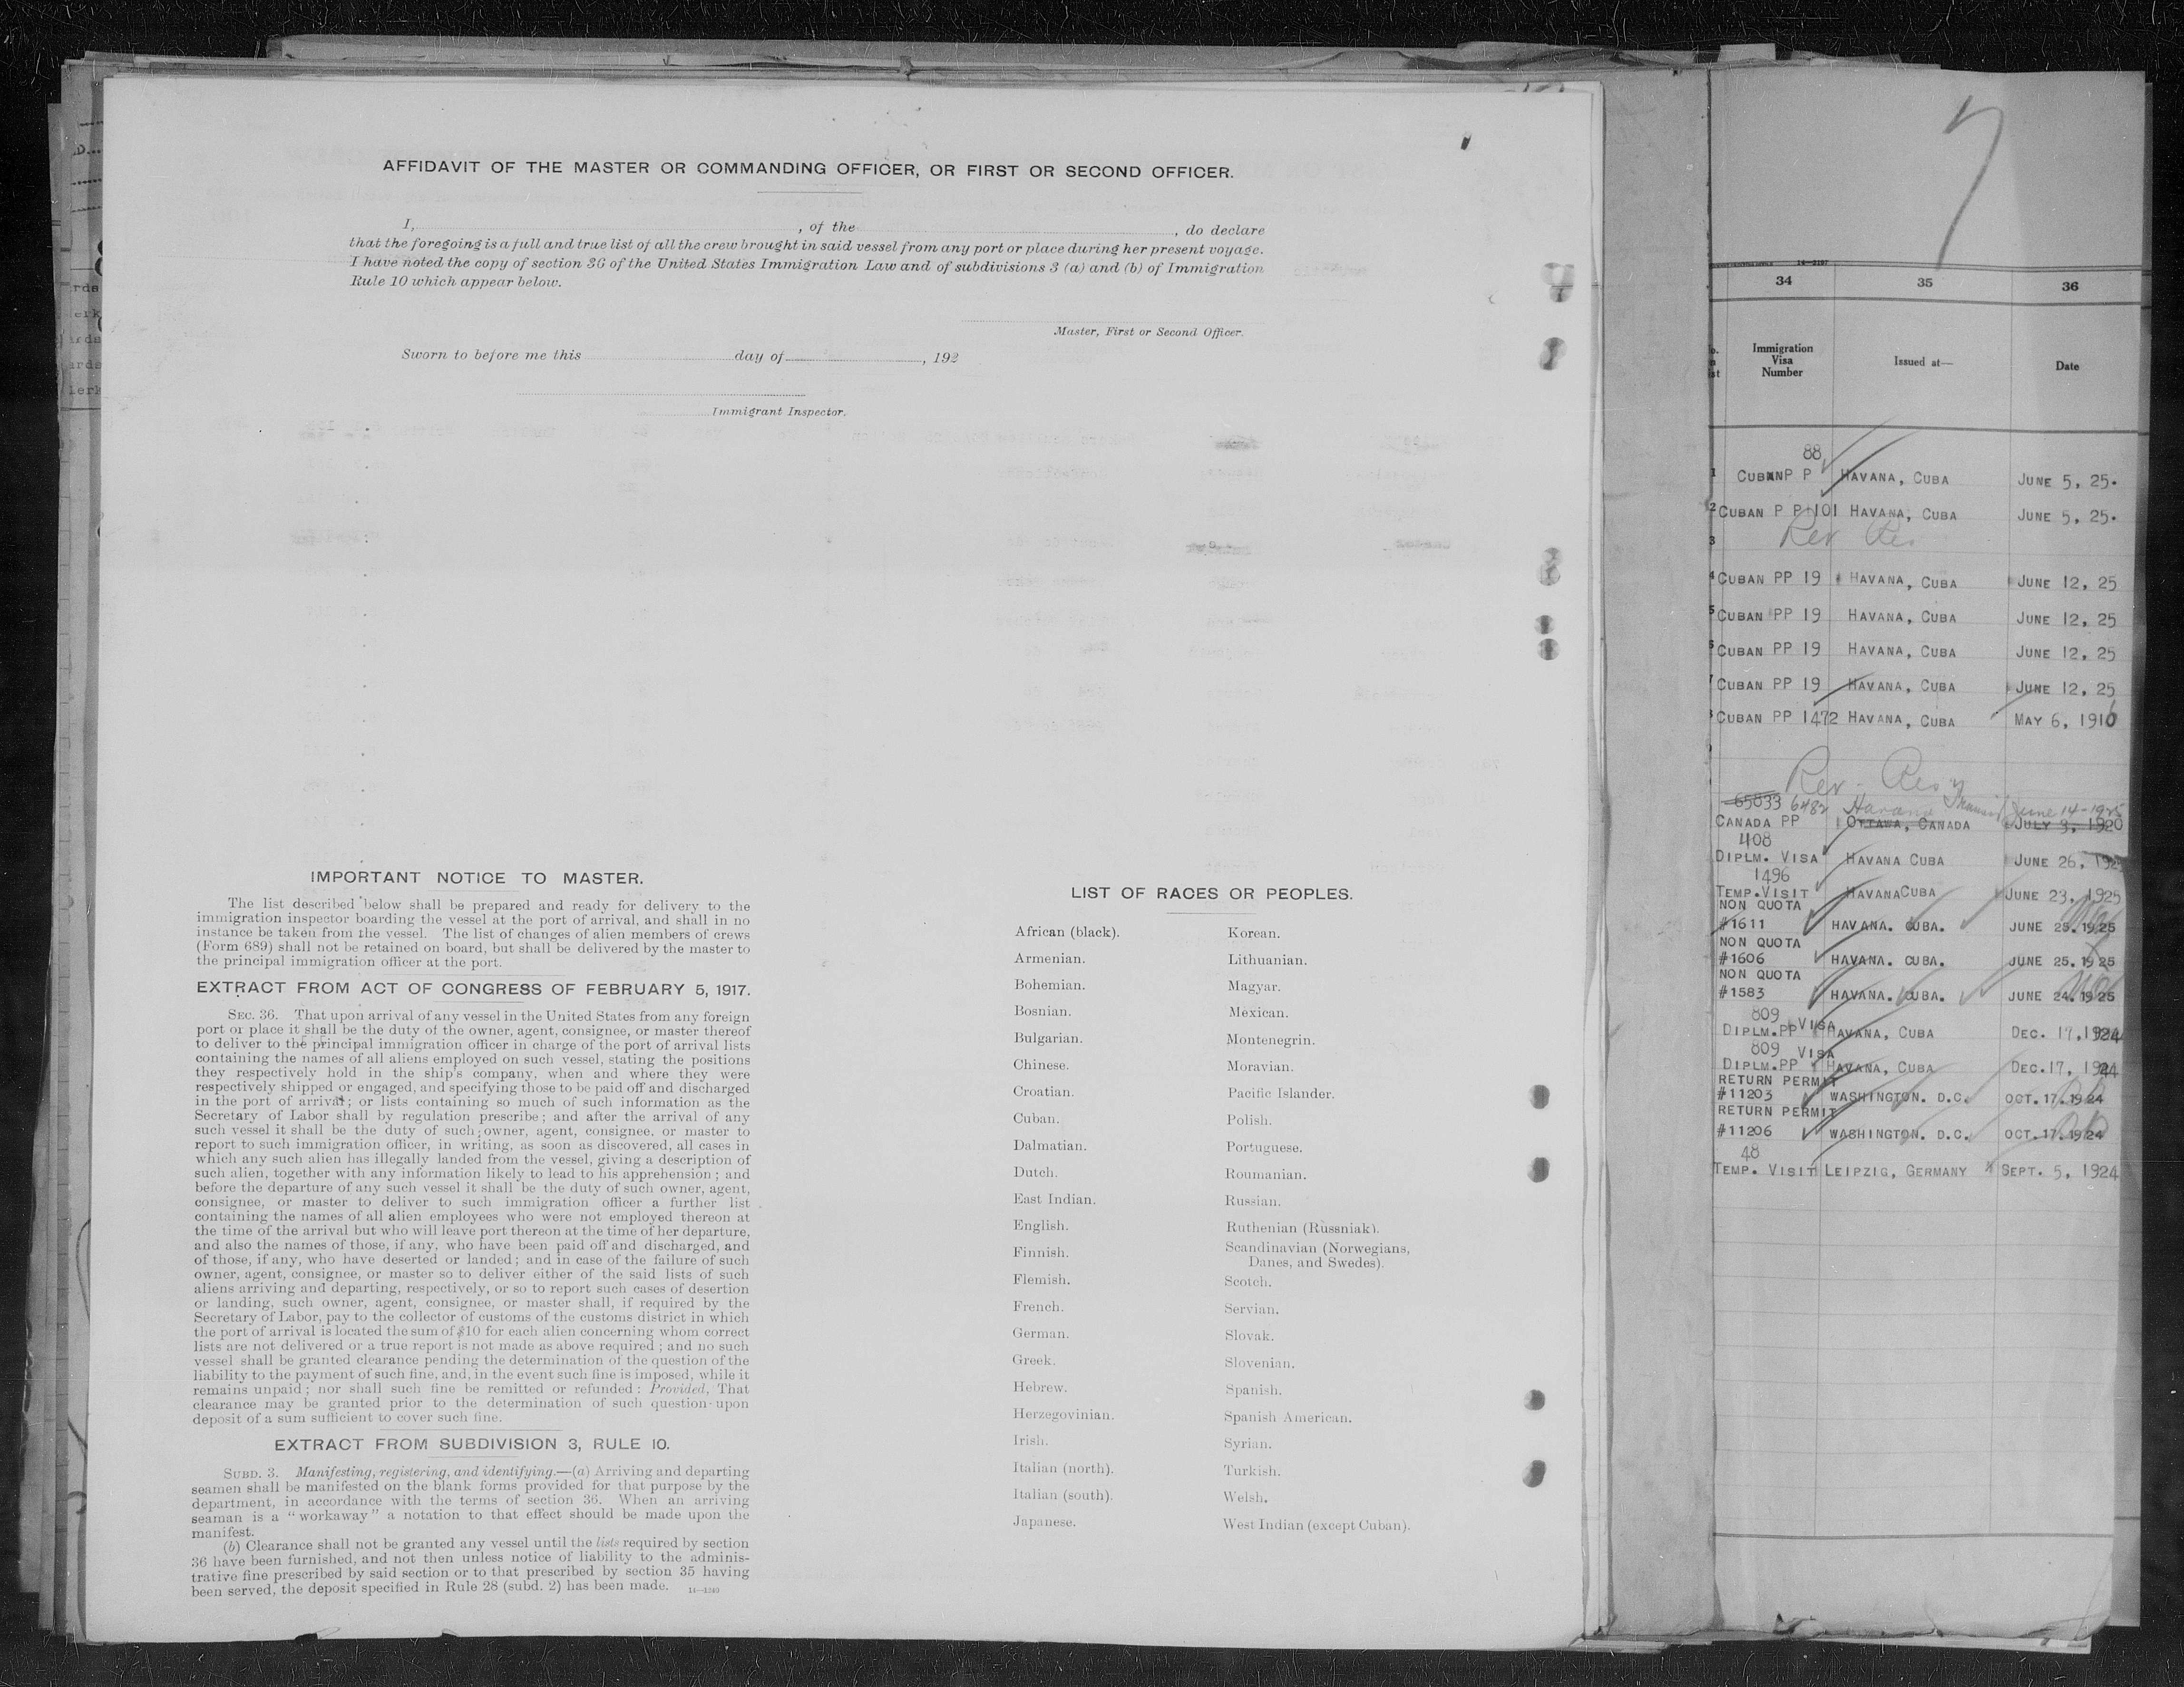 AFFIDAVIT OF THE MASTER OR COMMANDING OFFICER, OR FIRST OR SECOND OFFICER.
I, , of the , do declare
that the foregoing is a full and true list of all the crew brought in said vessel from any port or place during her present voyage.
I have noted the copy of section 36 of the United States Immigration Law and of subdivisions 3 (a) and (b) of Immigration
Rule 10 which appear below.
Master, First or Second Officer.
Sworn to before me this day of , 192
Immigrant Inspector.
IMPORTANT NOTICE TO MASTER.
The list described below shall be prepared and ready for delivery to the
immigration inspector boarding the vessel at the port of arrival, and shall in no
instance be taken from the vessel. The list of changes of alien members of crews
(Form 689) shall not be retained on board, but shall be delivered by the master to
the principal immigration officer at the port.
EXTRACT FROM ACT OF CONGRESS OF FEBRUARY 5, 1917.
SEC. 36. That upon arrival of any vessel in the United States from any foreign
port or place it shall be the duty of the owner, agent, consignee, or master thereof
to deliver to the principal immigration officer in charge of the port of arrival lists
containing the names of all aliens employed on such vessel, stating the positions
they respectively hold in the ship's company, when and where they were
respectively shipped or engaged, and specifying those to be paid off and discharged
in the port of arrival; or lists containing so much of such information as the
Secretary of Labor shall by regulation prescribe; and after the arrival of any
such vessel it shall be the duty of such owner, agent, consignee, or master to
report to such immigration officer, in writing, as soon as discovered, all cases in
which any such alien has illegally landed from the vessel, giving a description of
such alien, together with any information likely to lead to his apprehension; and
before the departure of any such vessel it shall be the duty of such owner, agent,
consignee, or master to deliver to such immigration officer a further list
containing the names of all alien employees who were not employed thereon at
the time of the arrival but who will leave port thereon at the time of her departure,
and also the names of those, if any, who have been paid off and discharged, and
of those, if any, who have deserted or landed; and in case of the failure of such
owner, agent, consignee, or master so to deliver either of the said lists of such
aliens arriving and departing, respectively, or so to report such cases of desertion
or landing, such owner, agent, consignee, or master shall, if required by the
Secretary of Labor, pay to the collector of customs of the customs district in which
the port of arrival is located the sum of $10 for each alien concerning whom correct
lists are not delivered or a true report is not made as above required; and no such
vessel shall be granted clearance pending the determination of the question of the
liability to the payment of such fine, and, in the event such fine is imposed, while it
remains unpaid; nor shall such fine be remitted or refunded: Provided, That
clearance may be granted prior to the determination of such question upon
deposit of a sum sufficient to cover such fine.
EXTRACT FROM SUBDIVISION 3, RULE 10.
SUBD. 3. Manifesting, registering, and identifying.—(a) Arriving and departing
seamen shall be manifested on the blank forms provided for that purpose by the
department, in accordance with the terms of section 36. When an arriving
seaman is a "workaway" a notation to that effect should be made upon the
manifest.
(b) Clearance shall not be granted any vessel until the lists required by section
36 have been furnished, and not then unless notice of liability to the adminis-
trative fine prescribed by said section or to that prescribed by section 35 having
been served, the deposit specified in Rule 28 (subd. 2) has been made. 14—1240
LIST OF RACES OR PEOPLES.
African (black).
Armenian.
Bohemian.
Bosnian.
Bulgarian.
Chinese.
Croatian.
Cuban.
Dalmatian.
Dutch.
East Indian.
English.
Finnish.
Flemish.
French.
German.
Greek.
Hebrew.
Herzegovinian.
Irish.
Italian (north).
Italian (south).
Japanese.
Korean.
Lithuanian.
Magyar.
Mexican.
Montenegrin.
Moravian.
Pacific Islander.
Polish.
Portuguese.
Roumanian.
Russian.
Ruthenian (Russniak).
Scandinavian (Norwegians,
Danes, and Swedes).
Scotch.
Servian.
Slovak.
Slovenian.
Spanish.
Spanish American.
Syrian.
Turkish.
Welsh.
West Indian (except Cuban).
7
14—2197
34 35 36
Immigration
Visa
Number
Issued at—
Date
88
1 CUBAN P P HAVANA, CUBA JUNE 5, 25.
2 CUBAN P P 1101 HAVANA, CUBA JUNE 5, 25.
3 Rev Res
4 CUBAN PP 19 HAVANA, CUBA JUNE 12, 25
5 CUBAN PP 19 HAVANA, CUBA JUNE 12, 25
CUBAN PP 19 HAVANA, CUBA JUNE 12, 25
CUBAN PP 19 HAVANA, CUBA JUNE 12, 25
CUBAN PP 1472 HAVANA, CUBA MAY 6, 1916
Rev - Res
65833 6482 Havana June 14-1925
CANADA PP OTTAWA, CANADA JULY 3, 1920
408
DIPLM. VISA HAVANA CUBA JUNE 26, 1925
1496
TEMP. VISIT HAVANA CUBA JUNE 23, 1925
NON QUOTA
#1611 HAVANA. CUBA. JUNE 25. 1925
NON QUOTA
#1606 HAVANA. CUBA. JUNE 25. 1925
NON QUOTA
#1583 HAVANA. CUBA. JUNE 24. 1925
809
DIPLM.PP VISA HAVANA, CUBA DEC. 17, 1924
809 VISA
DIPLM.PP HAVANA, CUBA DEC. 17, 1924
RETURN PERMIT
#11203 WASHINGTON. D.C. OCT. 17. 1924
RETURN PERMIT
#11206 WASHINGTON. D.C. OCT. 17. 1924
48
TEMP. VISIT LEIPZIG, GERMANY SEPT. 5, 1924